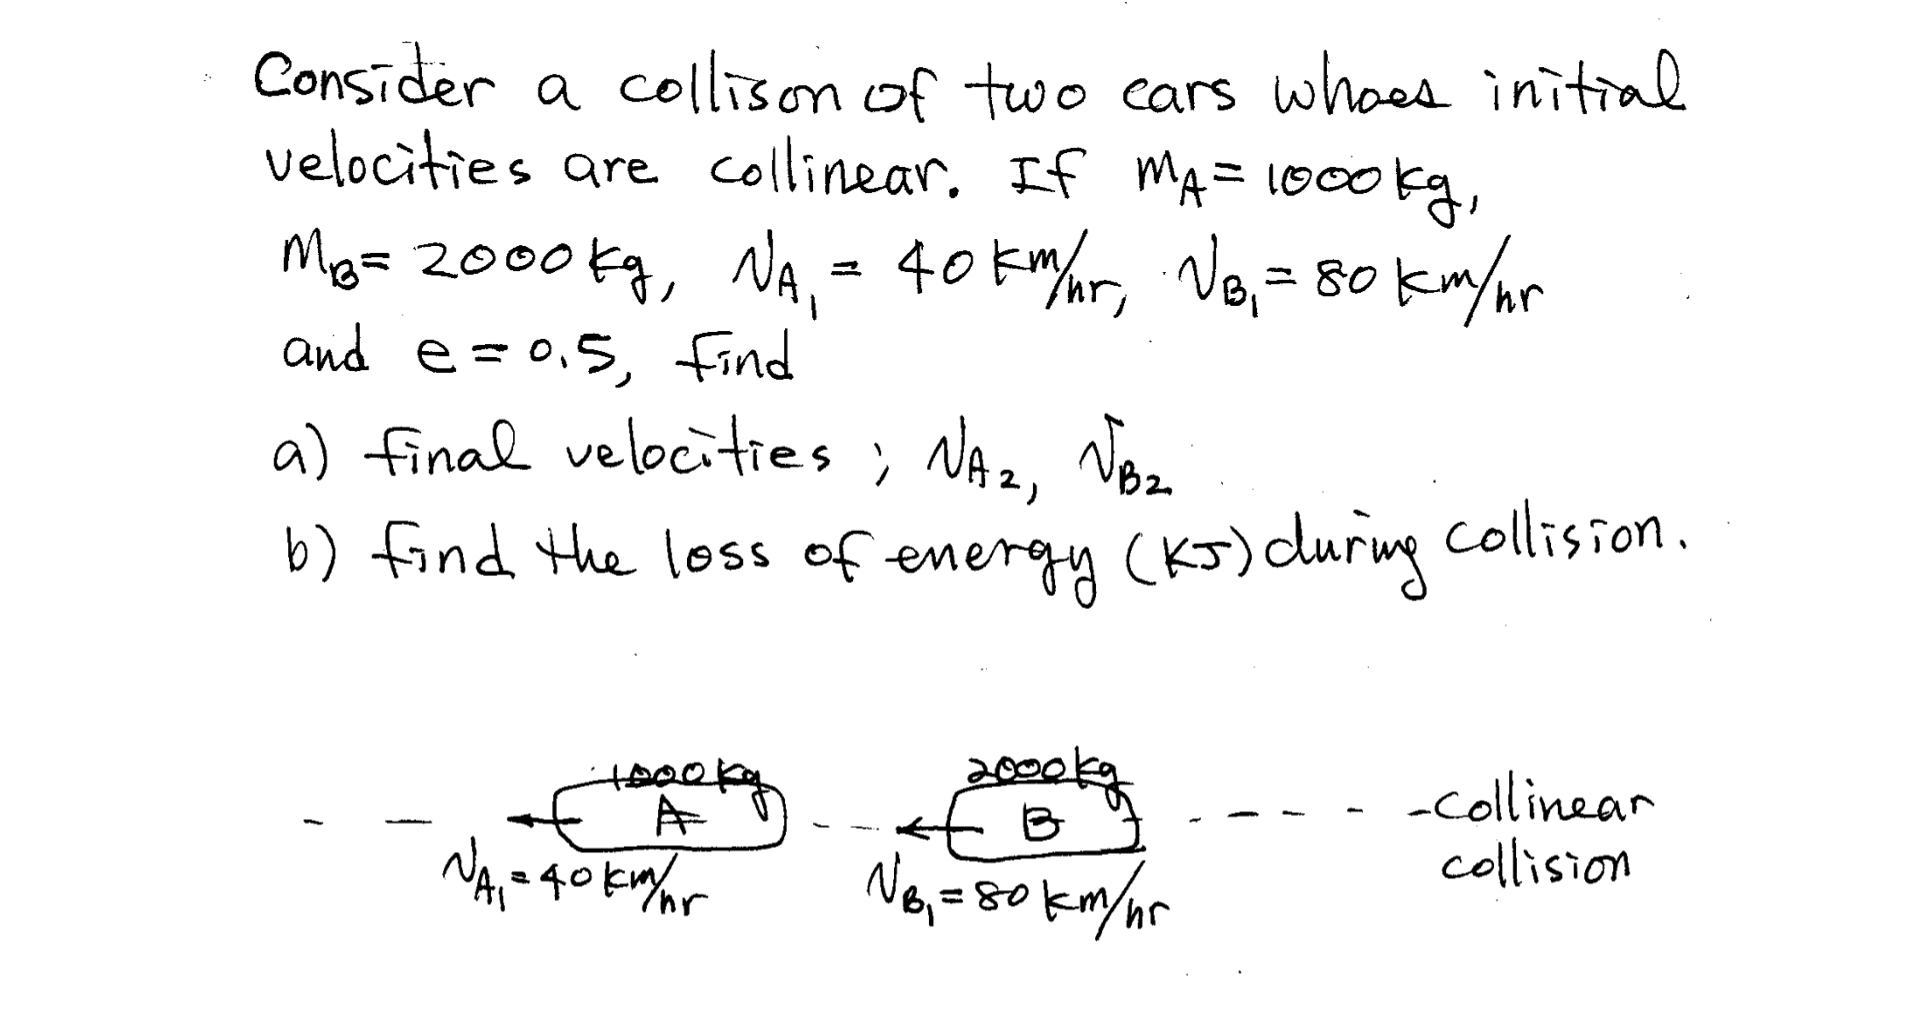 Consider a collison of two cars whoes initial
velocities are collinear. If mA = 1000 kg,
MB = 2000 kg, VA1 = 40 km/hr, VB1 = 80 km/hr
and e = 0.5, find
a) final velocities ; VA2, VB2
b) find the loss of energy (KJ) during collision.
1000 kg
2000 kg
A
B
VA1 = 40 km/hr
VB1 = 80 km/hr
- collinear
collision